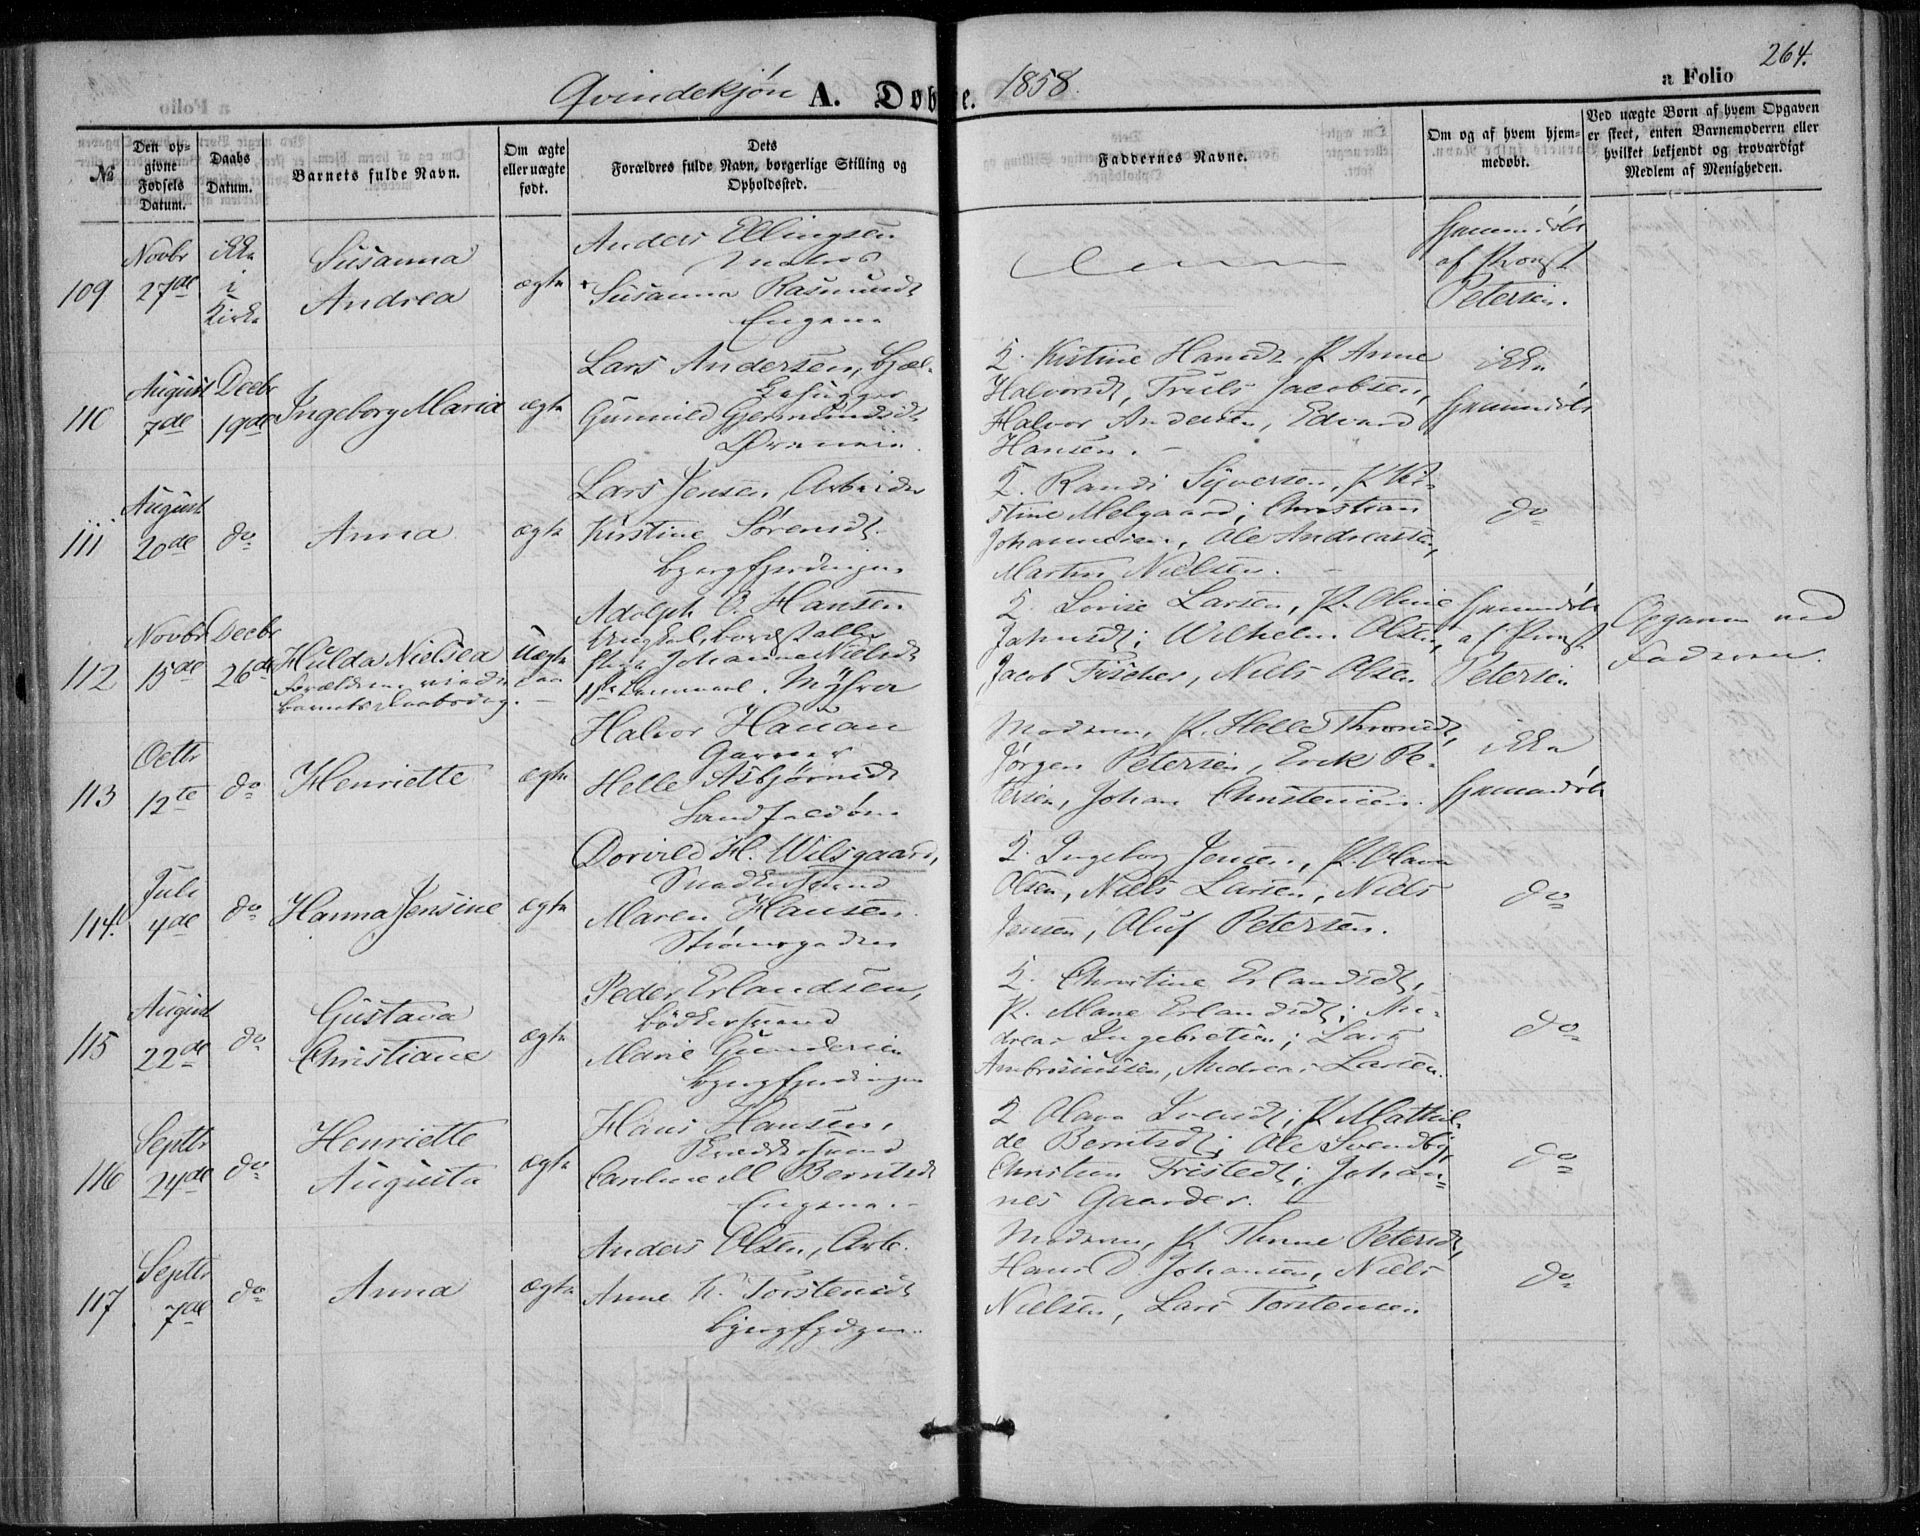 Qvindekjøn A. Døbte. 1858.
264.
a Folio
No
Den op-
givne
Fødsels
Datum.
Daabs
Datum.
Barnets fulde Navn.
Om ægte
eller uægte
født.
Dets
Forældres fulde Navn, borgerlige Stilling og
Opholdssted.
Faddernes Navne.
Om og af hvem hjem-
medøbt.
Ved uægte Børn af hvem Opgaven
er skeet, enten Barnemoderen eller
hvilket bekjendt og troværdigt
Medlem af Menigheden.
109
Novbr
27de
ikke
i
Kirke
Susanna
Andrea
ægte
Anders Ellingsen
Susanna Rasmusdt
Engene
hjemmedøbt
af Provst
Petersen.
110
August
7de
Decbr
19de
Ingeborg Maria
ægte
Lars Andersen, Bjæl-
kehugger
Gunnild Gjermundsdt
Øreneie.
2. Kistine Hansdt, K Anne
Halvorsdt, Truls Jacobsen,
Halvor Andersen, Edvard
Hansen. –
ikke
hjemmedøbt
111
August
20de
do
Anna
ægte
Lars Jensen, Arbeider
Kirstine Sørensdt.
Bjergfjerdingen
2. Randi Syversen, K Ki-
stine Melgaard, Christian
Johannesen, Ole Andreassen,
Martin Nielsen. –
do
112
Novbr
15de
Decbr
26de
Hulda Nielsea
Forældrene viede
Barnets Daabsdag.
Uægte
Adolph O. Hansen
Ungkal,
Pige Johanna Nielsdt
Myhra
2. Lovise Larsen, K. Oline
Jahnsdt; Wilhelm Olsen,
Jacob Fischer, Niels Olsen
hjemmedøbt
af Provst
Petersen
Opgaven ved
Faderen.
113
Octbr
12te
do
Henriette
ægte
Halvor Hauan
Garver
Helle Asbjørnsdt
Landfaldøen
Moderen, K. Helle Thronsdt,
Jørgen Petersen, Erik Pe-
tersen, Johan Christensen.
ikke
hjemmedøbt
114
Juli
4de
do
Hanna Jensine
ægte
Dorvild H. Wilsgaard,
Snedkersvend
Maren Hansen.
Strømsgaden
2. Ingeborg Jensen, K. Olava
Olsen, Niels Larsen, Niels
Jensen, Oluf Petersen.
do
115
August
22de
do
Gustava
Christiane
ægte
Peder Erlandsen,
Bødkersvend
Marie Gundersen
Bjergfjerdingen
2. Christine Erlandsdt,
K. Maren Erlandsdt; An-
dreas Ingebretsen; Lars
Ambrosiussen, Andreas Larsen.
do
116
Septbr
24de
do
Henriette
Augusta
ægte
Hans Hansen,
Skræddersvend
Caroline M Berntsdt
Engene. –
2 Olava Svensdt; K Mathil-
de Berntsdt; Ole Svendby,
Christian Fristedt; Johan-
nes Gaarder. –
do
117
Septbr
7de
do
Anna
ægte
Anders Olsen, Arb.
Anne K. Torstensdt
Bjergfjdgen.
Moderen, K Thrine Petersdt,
Hans D Johansen, Niels
Nielsen, Lars Torstensen
do